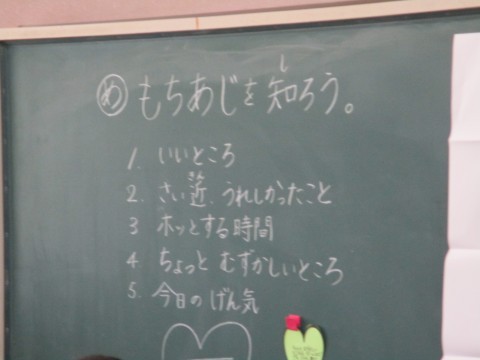 め もちあじを知ろう。
1. いいところ
2. さい近、うれしかったこと
3 ホッとする時間
4. ちょっと むずかしいところ
5. 今日のげん気